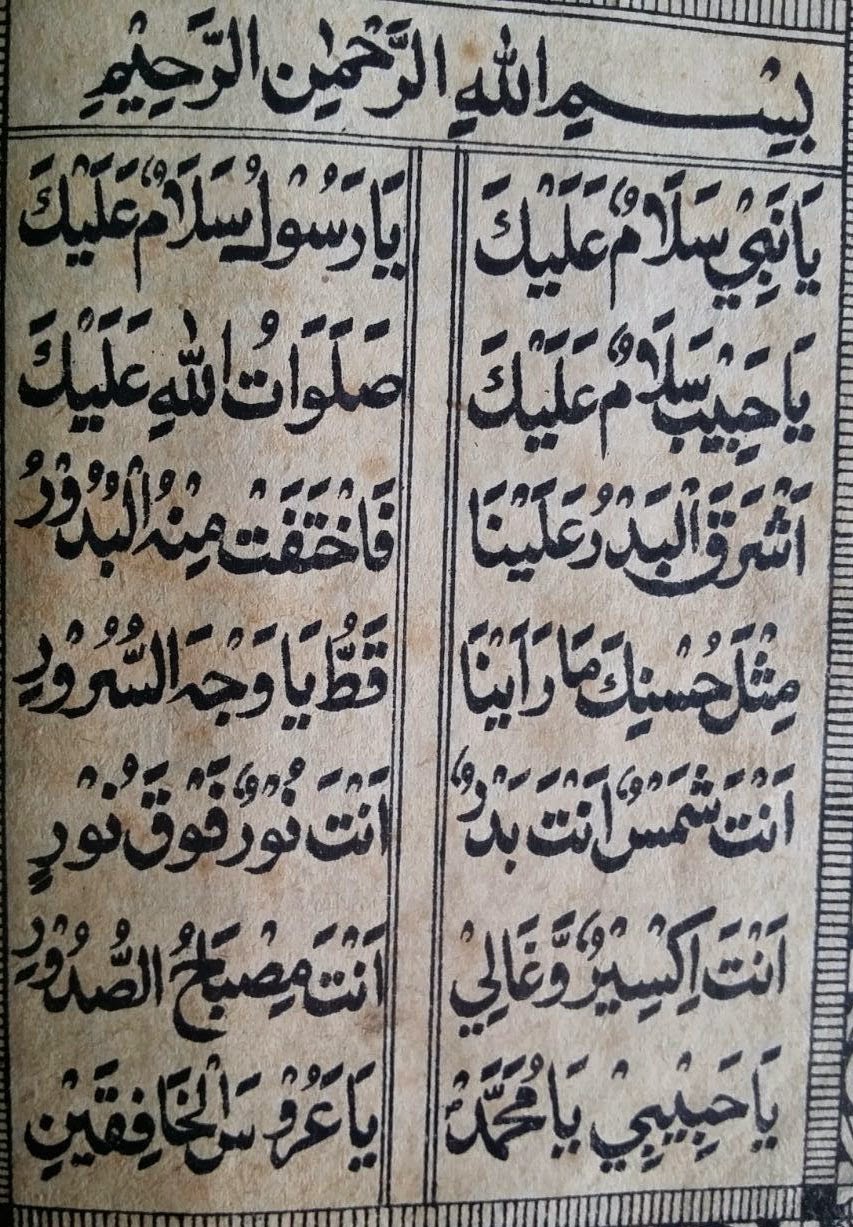 بِسْمِ اللهِ الرَّحْمٰنِ الرَّحِيْمِ
يَا نَبِيْ سَلَامٌ عَلَيْكَ يَا رَسُوْلُ سَلَامٌ عَلَيْكَ
يَا حَبِيْب سَلَامٌ عَلَيْكَ صَلَوَاتُ اللهِ عَلَيْكَ
اَشْرَقَ الْبَدْرُ عَلَيْنَا فَاخْتَفَتْ مِنْهُ الْبُدُوْرُ
مِثْلَ حُسْنِكَ مَا رَاَيْنَا قَطُّ يَا وَجْهَ السُّرُوْرِ
اَنْتَ شَمْسٌ اَنْتَ بَدْرٌ اَنْتَ نُوْرٌ فَوْقَ نُوْرٍ
اَنْتَ اِكْسِيْرٌ وَّغَالِيْ اَنْتَ مِصْبَاحُ الصُّدُوْرِ
يَا حَبِيْبِيْ يَا مُحَمَّدْ يَا عَرُوْسَ الْخَافِقَيْنِ